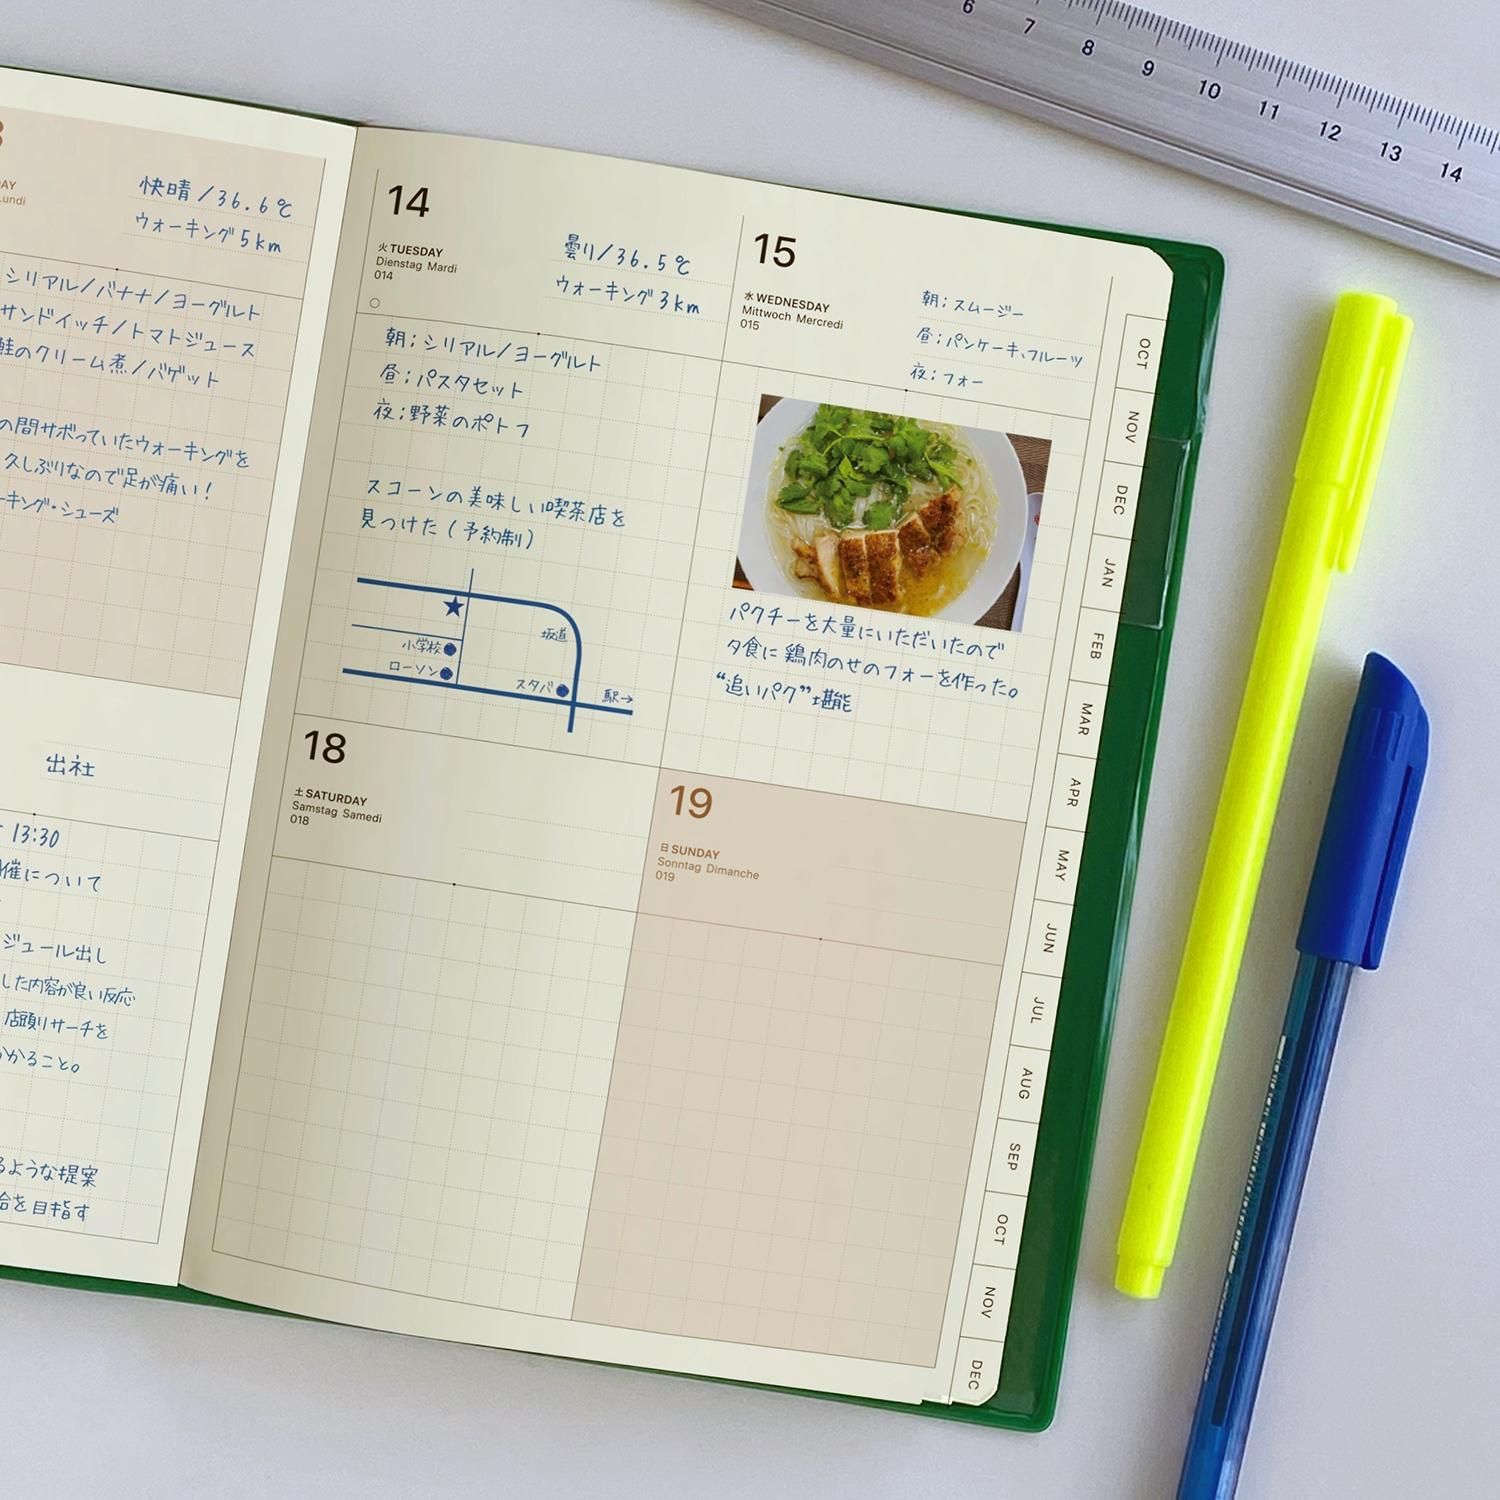 快晴/36.6℃
ウォーキング5km
シリアル/バナナ/ヨーグルト
サンドイッチ/トマトジュース
鮭のクリーム煮/バゲット
の間サボっていたウォーキングを
久しぶりなので足が痛い!
ーキング・シューズ
出社
13:30
催について
ジュール出し
した内容が良い反応
店頭リサーチを
かかること。
るような提案
を目指す
14
火 TUESDAY
Dienstag Mardi
014
曇り/36.5℃
ウォーキング3km
朝;シリアル/ヨーグルト
昼;パスタセット
夜;野菜のポトフ
スコーンの美味しい喫茶店を
見つけた(予約制)
★
坂道
小学校
ローソン
スタバ
駅→
15
水 WEDNESDAY
Mittwoch Mercredi
015
朝;スムージー
昼;パンケーキ、フルーツ
夜;フォー
パクチーを大量にいただいたので
夕食に鶏肉のせのフォーを作った。
“追いパク”堪能
18
土 SATURDAY
Samstag Samedi
018
19
日 SUNDAY
Sonntag Dimanche
019
OCT
NOV
DEC
JAN
FEB
MAR
APR
MAY
JUN
JUL
AUG
SEP
OCT
NOV
DEC
6 7 8 9 10 11 12 13 14